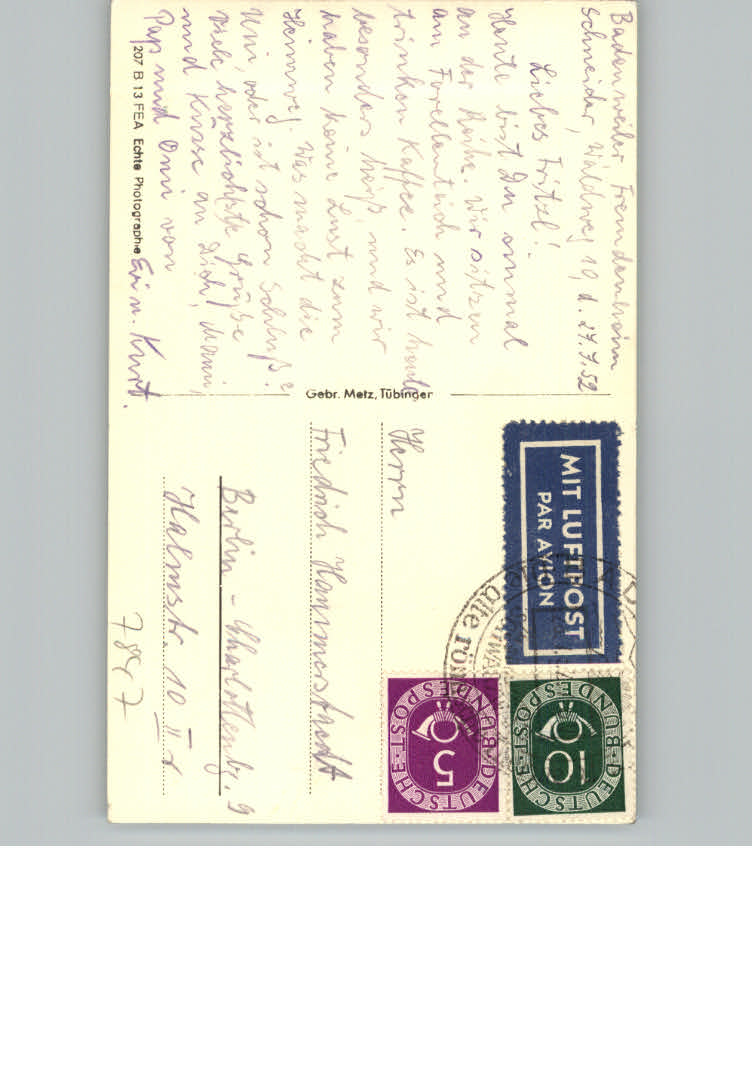 Badenweiler Fremdenheim
Schneider, Waldweg 19 d. 27.7.52
Liebes Fritzl!
Heute bist Du einmal
an der Reihe. Wir sitzen
am Forellenteich und
trinken Kaffee. Es ist heute
besonders heiß, und wir
haben keine Lust zum
Heimweg. Was macht die
Uni, oder ist schon Schluß?
Viele herzlichste Grüße
und Küsse an Dich, Mami,
Paps und Omi von
Evi u. Kurt.
207 B 13 FEA Echte Photographie
Gebr. Metz, Tübingen
MIT LUFTPOST
PAR AVION
alte
DEUTSCHE BUNDESPOST
10
DEUTSCHE BUNDESPOST
5
Herrn
Friedrich
Berlin - Charlottenbg. 9
Halmstr. 10 II r
7847